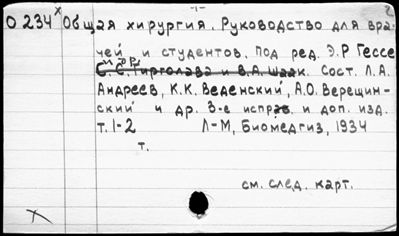 -1-
О 234 х Общая хирургия. Руководство для вра-
чей и студентов. Под ред. Э.Р Гессе
и др.
С. С. Гирголава и В.А. Шаак. Сост. Л.А.
Андреев, К.К. Веденский, А.О. Верещин-
ский и др. 3-е исправ. и доп. изд.
т. 1-2 Л-М, Биомедгиз, 1934
т.
см. след. карт.